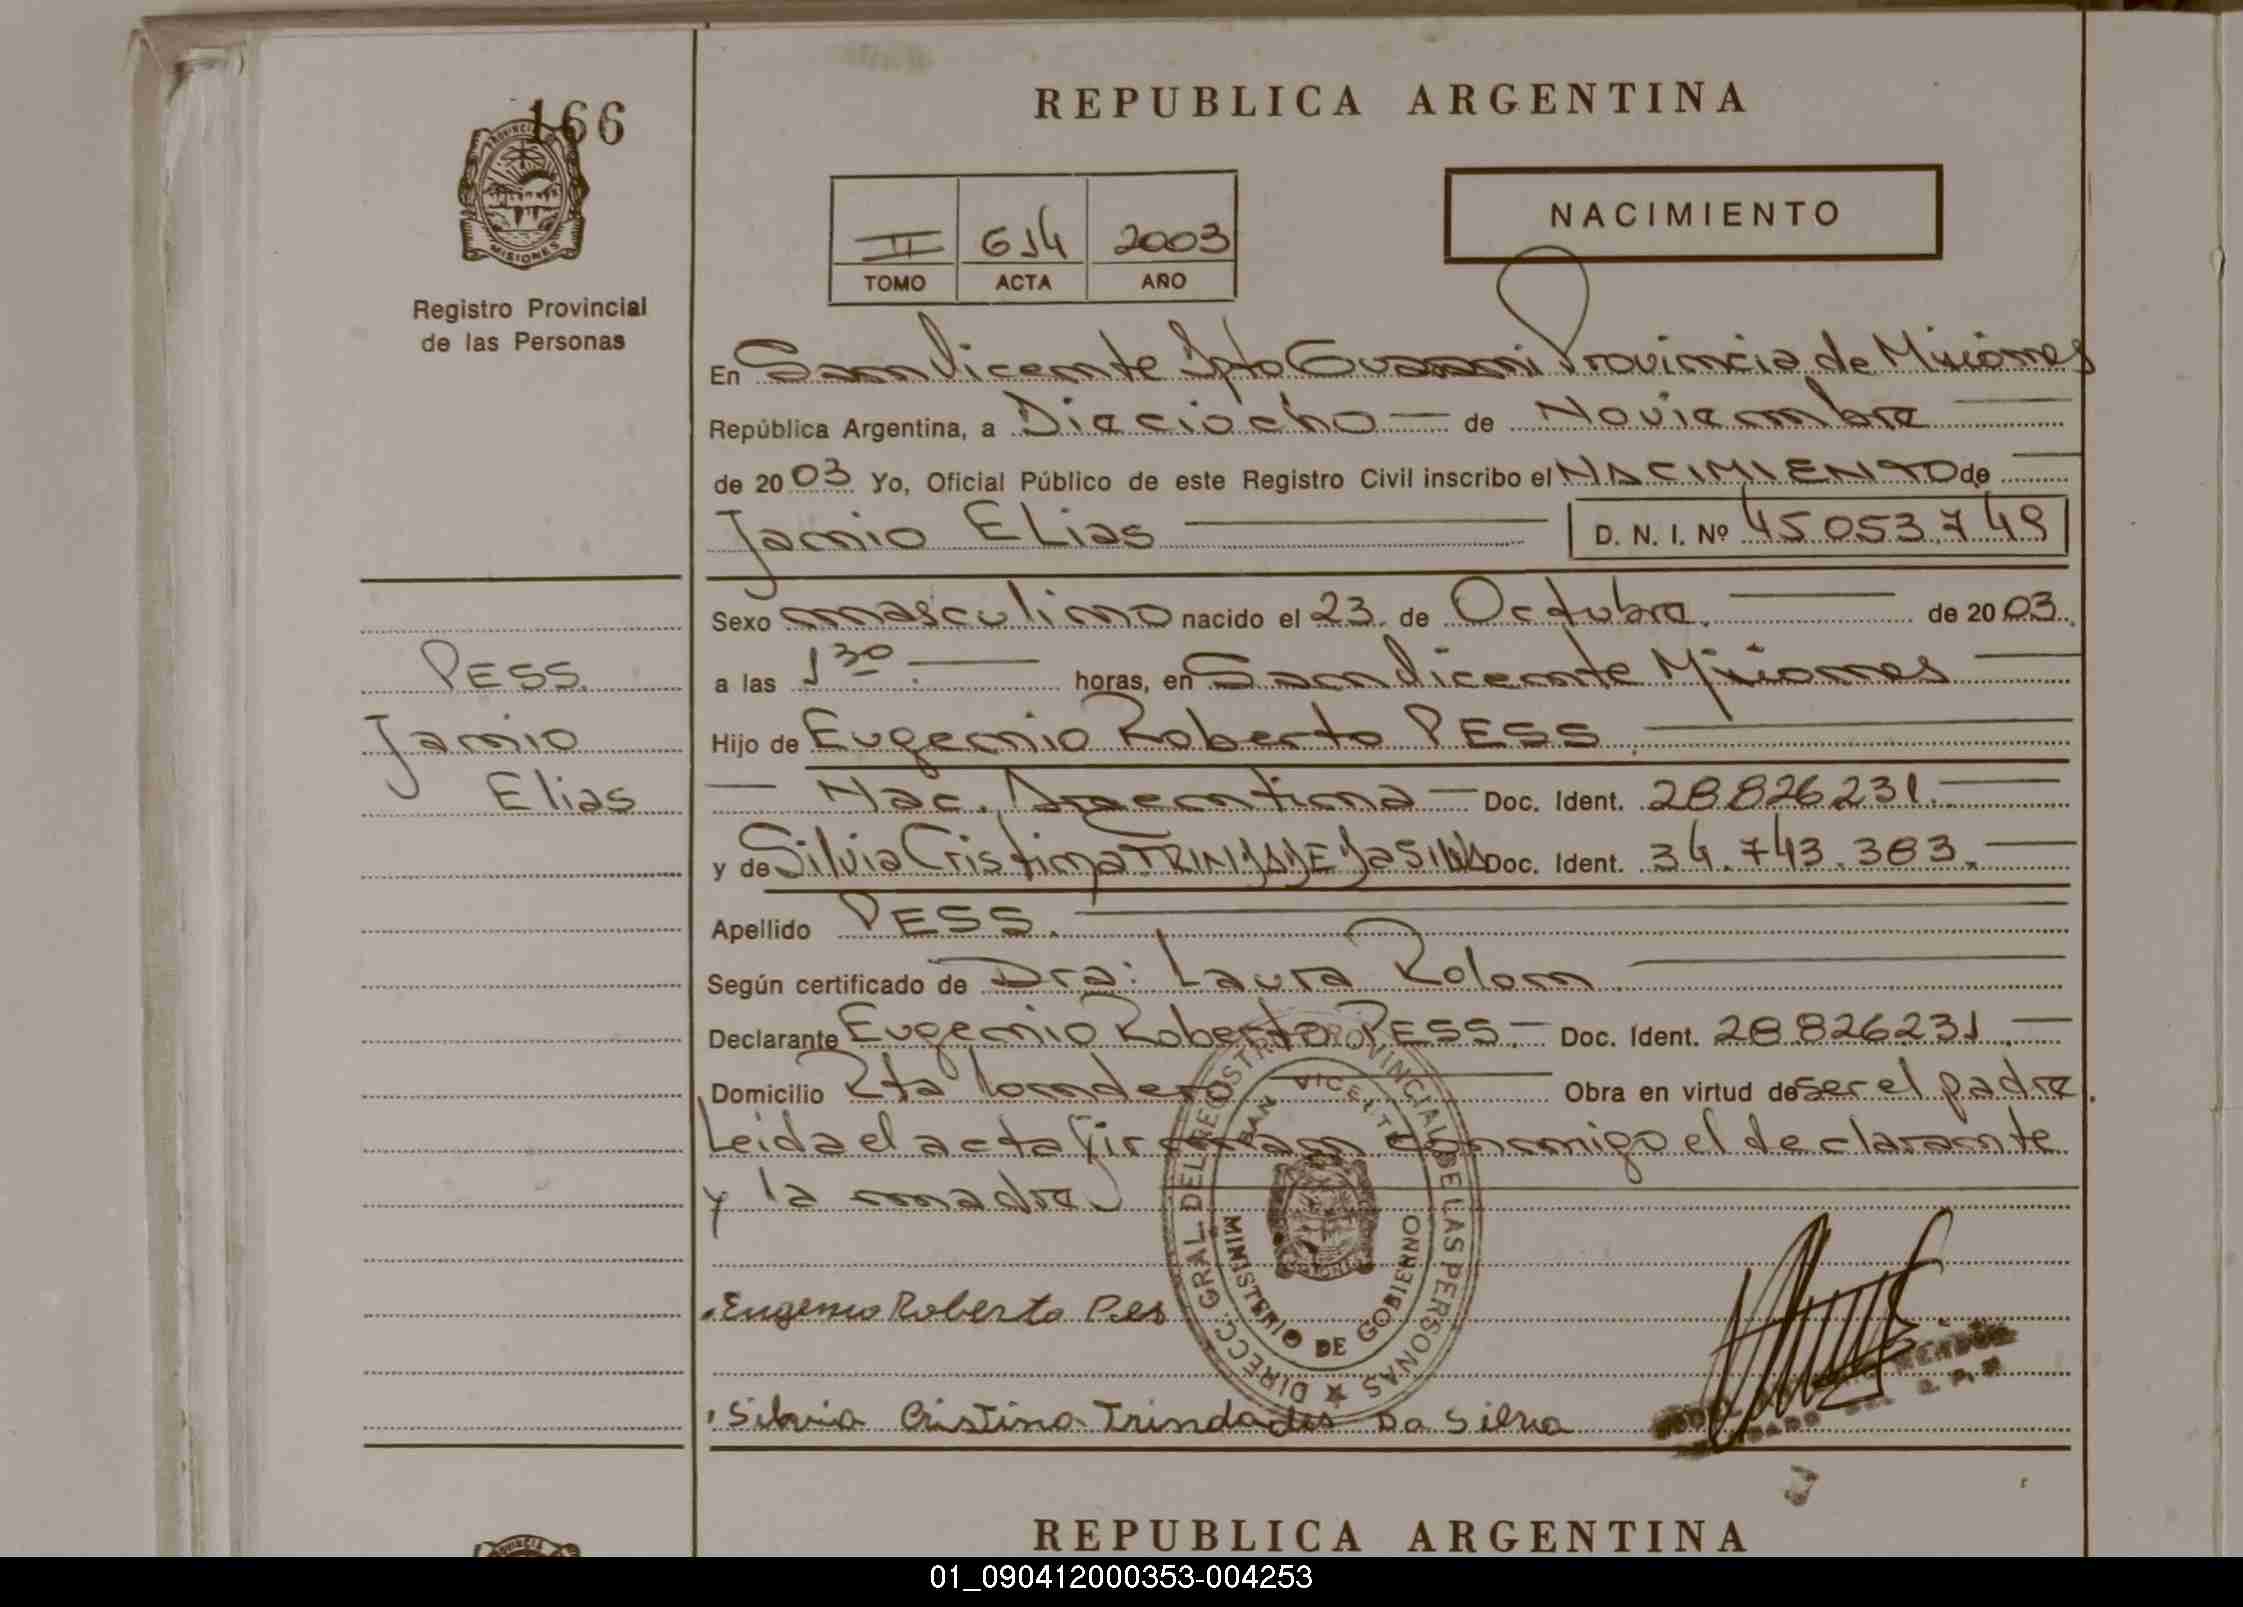 166
PROVINCIA
MISIONES
Registro Provincial
de las Personas
REPUBLICA ARGENTINA
II 614 2003
TOMO ACTA AÑO
NACIMIENTO
En San Vicente Dpto Guarani Provincia de Misiones
República Argentina, a Dieciocho — de Noviembre
de 2003 Yo, Oficial Público de este Registro Civil inscribo el NACIMIENTO de
Jamio Elias D. N. I. Nº 45053.749
Sexo masculino nacido el 23 de Octubre de 2003
a las 1 30 horas, en San Vicente Misiones
Hijo de Eugenio Roberto PESS
Nac. Argentina — Doc. Ident. 28826231.
y de Silvia Cristina TRINDADE Da SILVA Doc. Ident. 34.743.383.
Apellido PESS.
Según certificado de Dra: Laura Rolon
Declarante Eugenio Roberto PESS. — Doc. Ident. 28826231.
Domicilio Rta Londero Obra en virtud de ser el padre.
Leida el acta firman conmigo el declarante
y la madre
PESS.
Jamio
Elias
DIRECC. GRAL DEL REGISTRO PROVINCIAL DE LAS PERSONAS
SAN VICENTE
MINISTERIO DE GOBIERNO
Eugenio Roberto Pes
Silvia Cristina Trindades Da Silva
REPUBLICA ARGENTINA
PROVINCIA
01_090412000353-004253